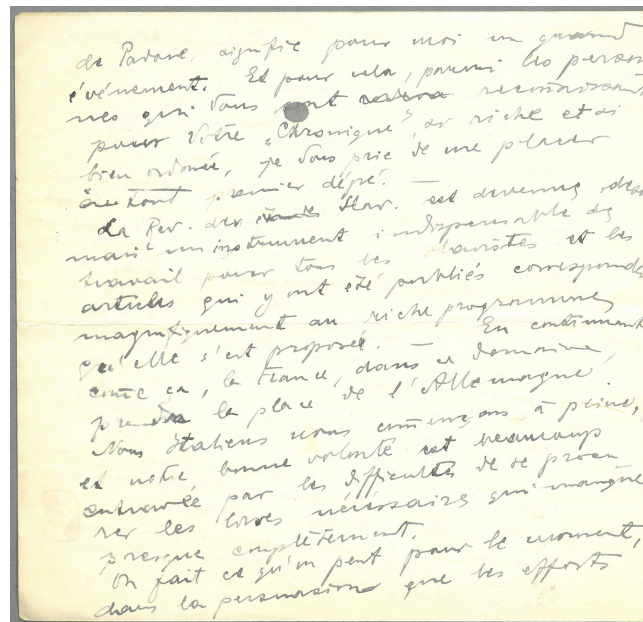 de Padoue, signifie pour moi un grand
événement. Et pour cela, parmi les person
nes qui Vous sont reconnaissant
pour Votre „Chronique", si riche et si
bien ordonée, je Vous prie de me placer
au tout premier dégré.
La Rev. des Slav. — est devenue désor
mais un instrument indispensable de
travail pour tous les slavistes et les
articles qui y ont été publiés correspondent
magnifiquement au riche programme
qu'elle s'est proposée. — En continuant
come ça, la France, dans ce domaine,
prendra la place de l'Allemagne.
Nous Italiens nous commençons à peine,
et notre bonne volonté est beaucoup
entravée par les difficultés de se procu
rer les livres nécéssaires qui manquent
presque complètement.
On fait ce qu'on peut pour le moment,
dans la persuasion que les efforts